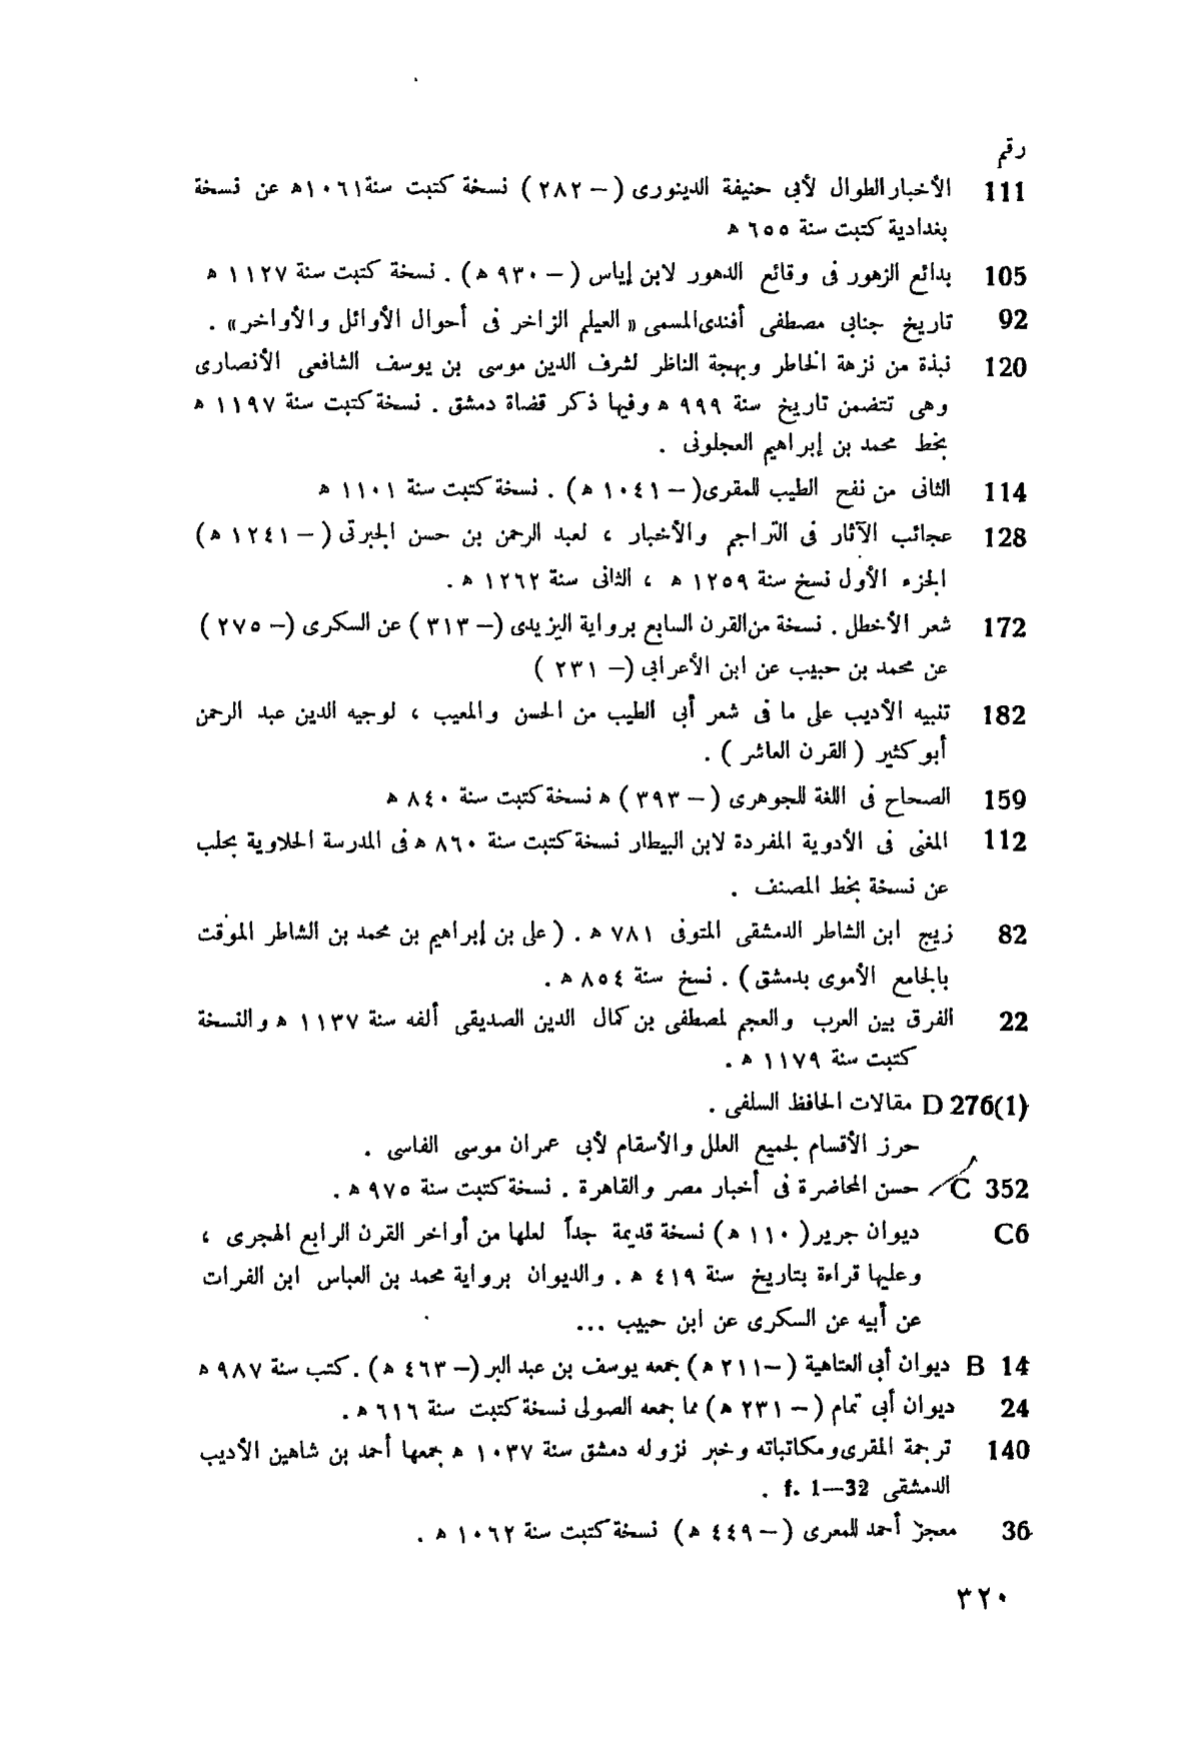 رقم
111 الأخبار الطوال لأبى حنيفة الدينورى (– ٢٨٢) نسخة كتبت سنة ١٠٦١ه عن نسخة
بغدادية كتبت سنة ٦٥٥ ه
105 بدائع الزهور فى وقائع الدهور لابن إياس (– ٩٣٠ ه) . نسخة كتبت سنة ١١٢٧ ه
92 تاريخ جنابى مصطفى أفندى المسمى « العيلم الزاخر فى أحوال الأوائل والأواخر» .
120 نبذة من نزهة الخاطر وبهجة الناظر لشرف الدين موسى بن يوسف الشافعى الأنصارى
وهى تتضمن تاريخ سنة ٩٩٩ ه وفيها ذكر قضاة دمشق . نسخة كتبت سنة ١١٩٧ ه
بخط محمد بن إبراهيم العجلونى .
114 الثانى من نفح الطيب للمقرى(– ١٠٤١ ه) . نسخة كتبت سنة ١١٠١ ه
128 عجائب الآثار فى التراجم والأخبار ، لعبد الرحمن بن حسن الجبرتى (– ١٢٤١ ه)
الجزء الأول نسخ سنة ١٢٥٩ ه ، الثانى سنة ١٢٦٢ ه .
172 شعر الأخطل . نسخة من القرن السابع برواية اليزيدى (– ٣١٣) عن السكرى (– ٢٧٥)
عن محمد بن حبيب عن ابن الأعرابى (– ٢٣١ )
182 تنبيه الأديب على ما فى شعر أبى الطيب من الحسن والمعيب ، لوجيه الدين عبد الرحمن
أبو كثير ( القرن العاشر ) .
159 الصحاح فى اللغة للجوهرى (– ٣٩٣) ه نسخة كتبت سنة ٨٤٠ ه
112 المغنى فى الأدوية المفردة لابن البيطار نسخة كتبت سنة ٨٦٠ ه فى المدرسة الحلاوية بحلب
عن نسخة بخط المصنف .
82 زيج ابن الشاطر الدمشقى المتوفى ٧٨١ ه . (على بن إبراهيم بن محمد بن الشاطر الموقت
بالجامع الأموى بدمشق) . نسخ سنة ٨٥٤ ه .
22 الفرق بين العرب والعجم لمصطفى بن كمال الدين الصديقى ألفه سنة ١١٣٧ ه والنسخة
كتبت سنة ١١٧٩ ه .
D 276(1) مقالات الحافظ السلفى .
حرز الأقسام لجميع العلل والأسقام لأبى عمران موسى الفاسى .
C 352 حسن المحاضرة فى أخبار مصر والقاهرة . نسخة كتبت سنة ٩٧٥ ه .
C6 ديوان جرير( ١١٠ ه) نسخة قديمة جداً لعلها من أواخر القرن الرابع الهجرى ،
وعليها قراءة بتاريخ سنة ٤١٩ ه . والديوان برواية محمد بن العباس ابن الفرات
عن أبيه عن السكرى عن ابن حبيب ...
B 14 ديوان أبى العتاهية (–٢١١ ه) جمعه يوسف بن عبد البر (– ٤٦٣ ه) . كتب سنة ٩٨٧ ه
24 ديوان أبى تمام (– ٢٣١ ه) مما جمعه الصولى نسخة كتبت سنة ٦١٦ ه .
140 ترجمة المقرى ومكاتباته وخبر نزوله دمشق سنة ١٠٣٧ ه جمعها أحمد بن شاهين الأديب
الدمشقى f. 1—32 .
36 معجز أحمد للمعرى (– ٤٤٩ ه) نسخة كتبت سنة ١٠٦٢ ه .
٣٢٠